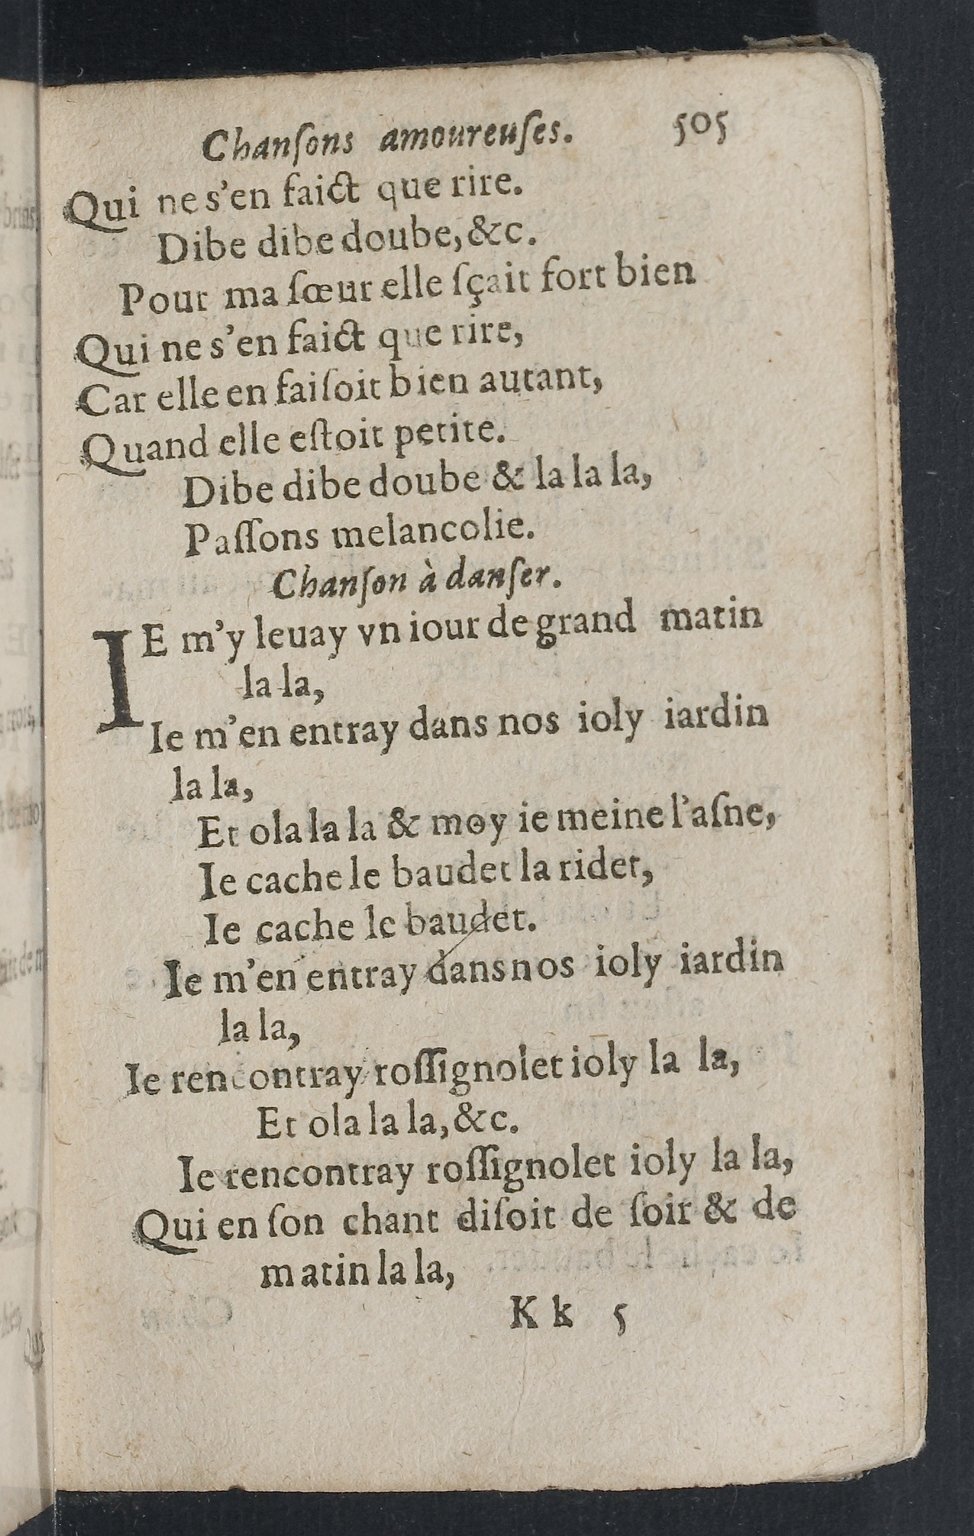 Chanſons amoureuſes. 505
Qui ne s'en faict que rire.
Dibe dibe doube, &c.
Pour ma ſœur elle ſçait fort bien
Qui ne s'en faict que rire,
Car elle en faiſoit bien autant,
Quand elle eſtoit petite.
Dibe dibe doube & la la la,
Paſſons melancolie.
Chanſon à danſer.
IE m'y leuay vn iour de grand matin
la la,
Ie m'en entray dans nos ioly iardin
la la,
Et ola la la & moy ie meine l'aſne,
Ie cache le baudet la ridet,
Ie cache le baudet.
Ie m'en entray dans nos ioly iardin
la la,
Ie rencontray roſſignolet ioly la la,
Et ola la la, &c.
Ie rencontray roſſignolet ioly la la,
Qui en ſon chant diſoit de ſoir & de
matin la la,
K k 5